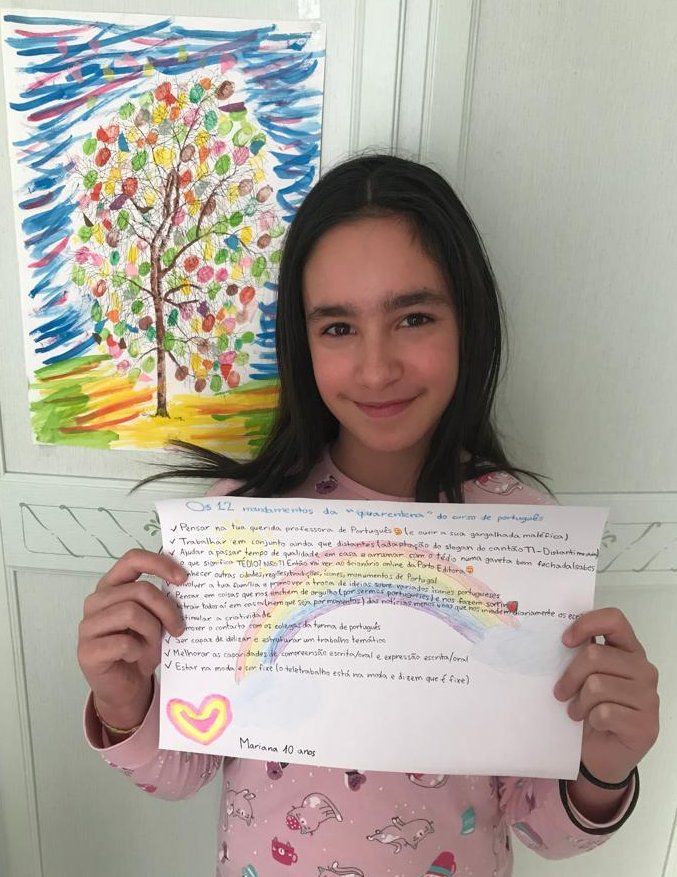 Os 12 mandamentos da "quarentena" do curso de português
✓ Pensar na tua querida professora de Português (e ouvir a sua gargalhada maléfica)
✓ Trabalhar em conjunto ainda que distantes (adaptação do slogan do cantão TI - Distanti ma
✓ Ajudar a passar tempo de qualidade em casa e arrumar com o tédio numa gaveta bem fechada (sabes
o que significa TÉDIO? NÃO?! Então vai ver ao dicionário online da Porto Editora
nhecer outras cidades, regiões, tradições, ícones, monumentos de Portugal
volver a tua família e promover a troca de ideias sobre variados ícones portugueses
Pensar em coisas que nos enchem de orgulho (por sermos portugueses) e nos fazem sorrir
trair todos aí em casa (nem que seja por momentos) das notícias menos boas que nos diariamente os
timular a criatividade
mover o contacto com os colegas da turma de português
✓ Ser capaz de idealizar e estruturar um trabalho temático
✓ Melhorar as capacidades de compreensão escrita/oral e expressão escrita/oral
✓ Estar na moda e ser fixe (o teletrabalho está na moda e dizem que é fixe)
Mariana 10 anos